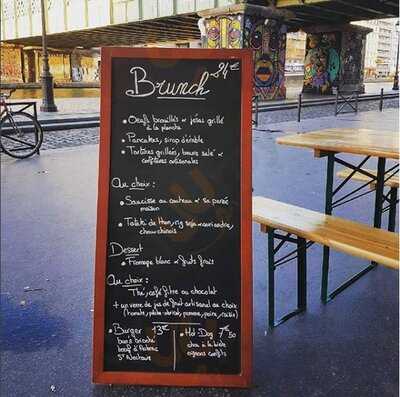 Brunch 24€
• Oeufs brouillés & pains grillé
à la plancha
• Pancakes, sirop d'érable
• Tartines grillées, beurre salé &
confitures artisanales
Au choix :
• Saucisse au couteau & sa purée
maison
• Tataki de thon, riz soja & coriandre,
chou chinois
Dessert
• Fromage blanc & fruits frais
Au choix :
Thé, café filtre ou chocolat
+ un verre de jus de fruit artisanal au choix
(tomate, pêche-abricot, pomme, poire,
• Burger 13€
buns brioché
boeuf d'Aubrac
St Nectaire
• Hot Dog 7€50
chou à la bière
oignons confits